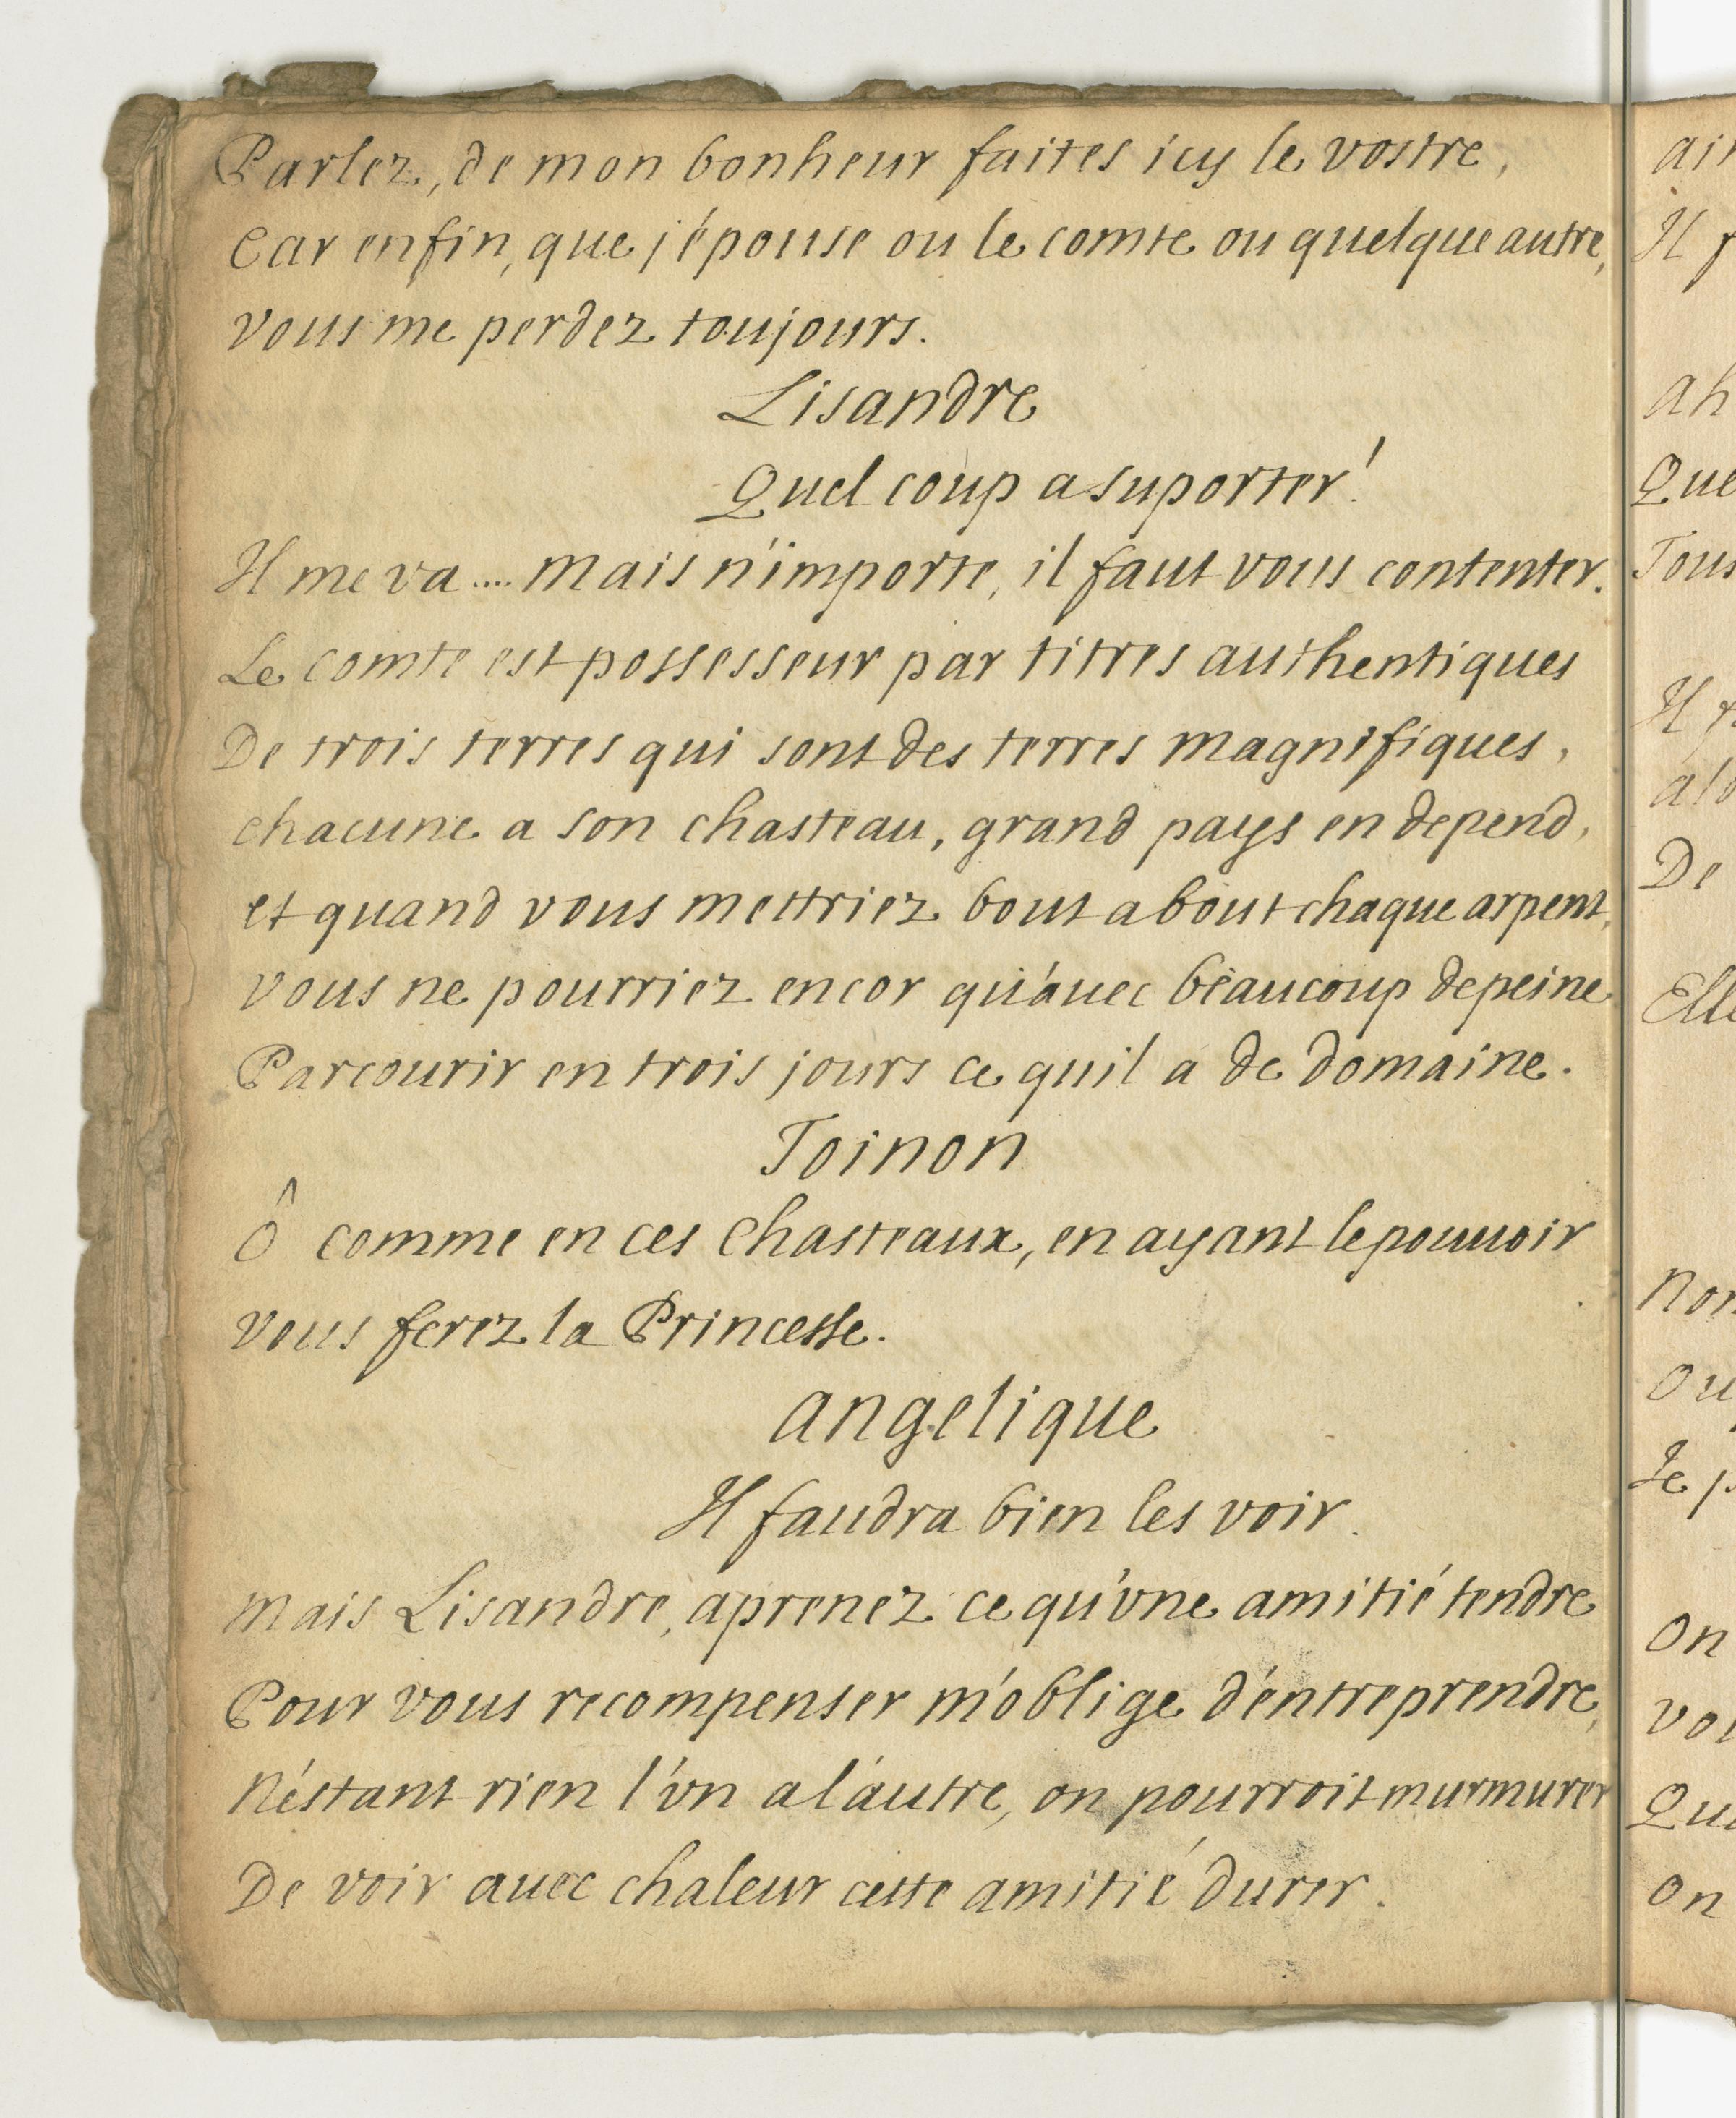 Parlez, de mon bonheur faites icy le vostre,
Car enfin, que j'épouse ou le comte ou quelque autre,
vous me perdez toujours.
Lisandre
Quel coup a suporter!
Il me va .... mais n'importe, il faut vous contenter.
Le comte est possesseur par titres authentiques
De trois terres qui sont des terres magnifiques,
chacune a son chasteau, grand pays en depend,
et quand vous mettriez bout a bout chaque arpent,
vous ne pourriez encor qu'auec beaucoup de peine
Parcourir en trois jours ce quil a de domaine.
Toinon
Ô comme en ces chasteaux, en ayant le pouuoir
vous ferez la Princesse.
angelique
Il faudra bien les voir.
mais Lisandre, aprenez ce qu'vne amitié tendre
Pour vous recompenser m'oblige d'entreprendre,
N'estant rien l'vn a l'autre, on pourroit murmurer
De voir auec chaleur cette amitié durer.
Il
ah
Que
Tous
Il
De
Elle
Non
Je
On
On